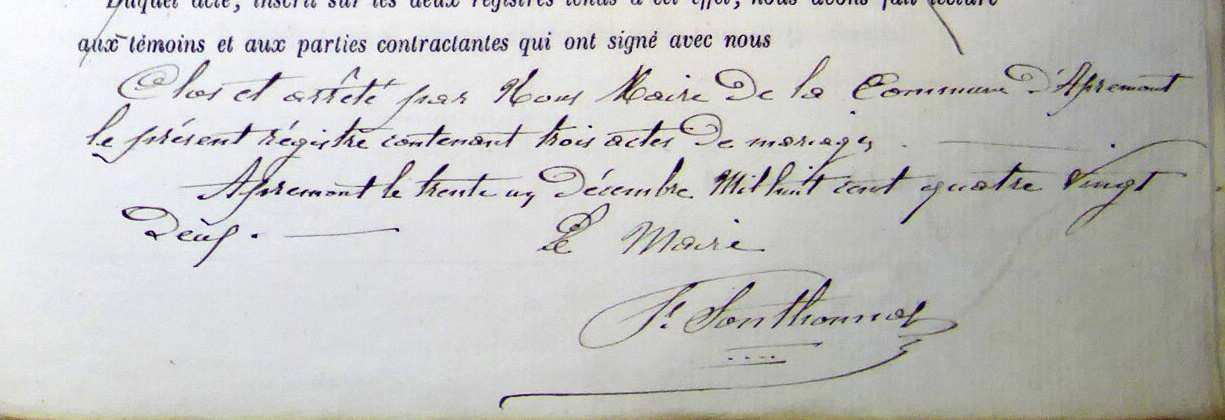 Duquel acte, inscrit sur les deux registres tenus à cet effet, nous avons fait lecture
aux témoins et aux parties contractantes qui ont signé avec nous
Clos et arrêté par Nous Maire De la Commune d'Apremont
le présent régistre contenant trois actes De mariages.
Apremont le trente un Décembre Mil huit cent quatre vingt
Deux.
Le Maire